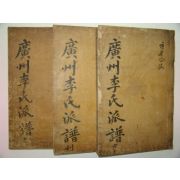 廣州李氏派譜
廣州李氏派譜
廣州李氏派譜